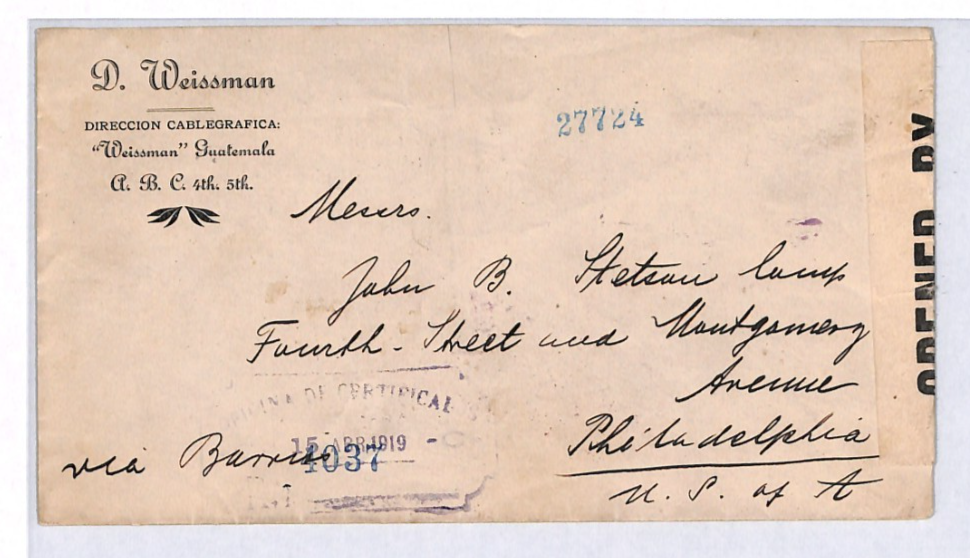 D. Weissman
DIRECCION CABLEGRAFICA:
"Weissman" Guatemala
A. B. C. 4th. 5th.
27724
OPENED BY
Messrs.
John B. Stetson Comp
Fourth - Street and Montgomery
Avenue
Philadelphia
U. S. of A
via Barrios
OFICINA DE CERTIFICAD
15 ABR 1919
4037